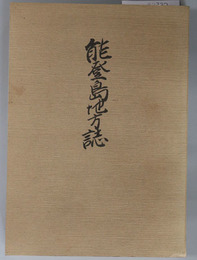 能登島地方誌